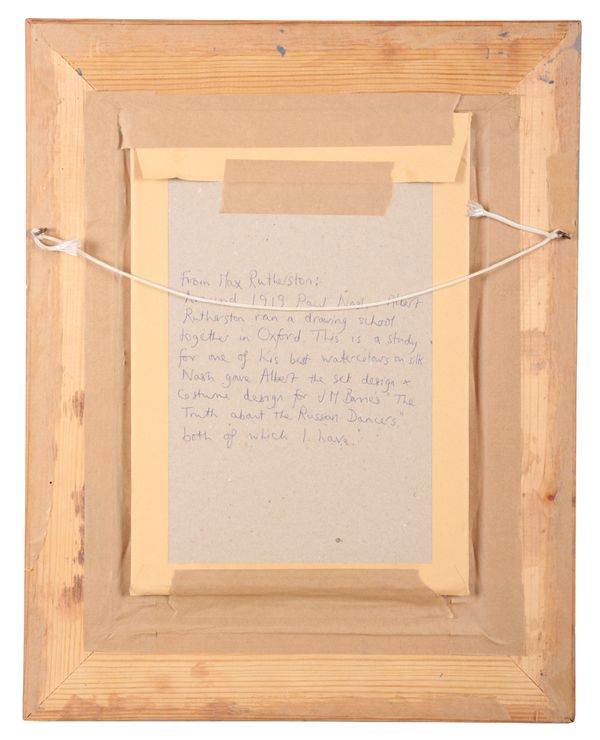 From Max Rutherston:
Around 1919 Paul Nash Albert
Rutherston ran a drawing school
together in Oxford This is a study
for one of his best watercolours on silk
Nash gave Albert the set design +
Costume design for J M Barries "The
Truth about the Russian Dancers,"
both of which I have.